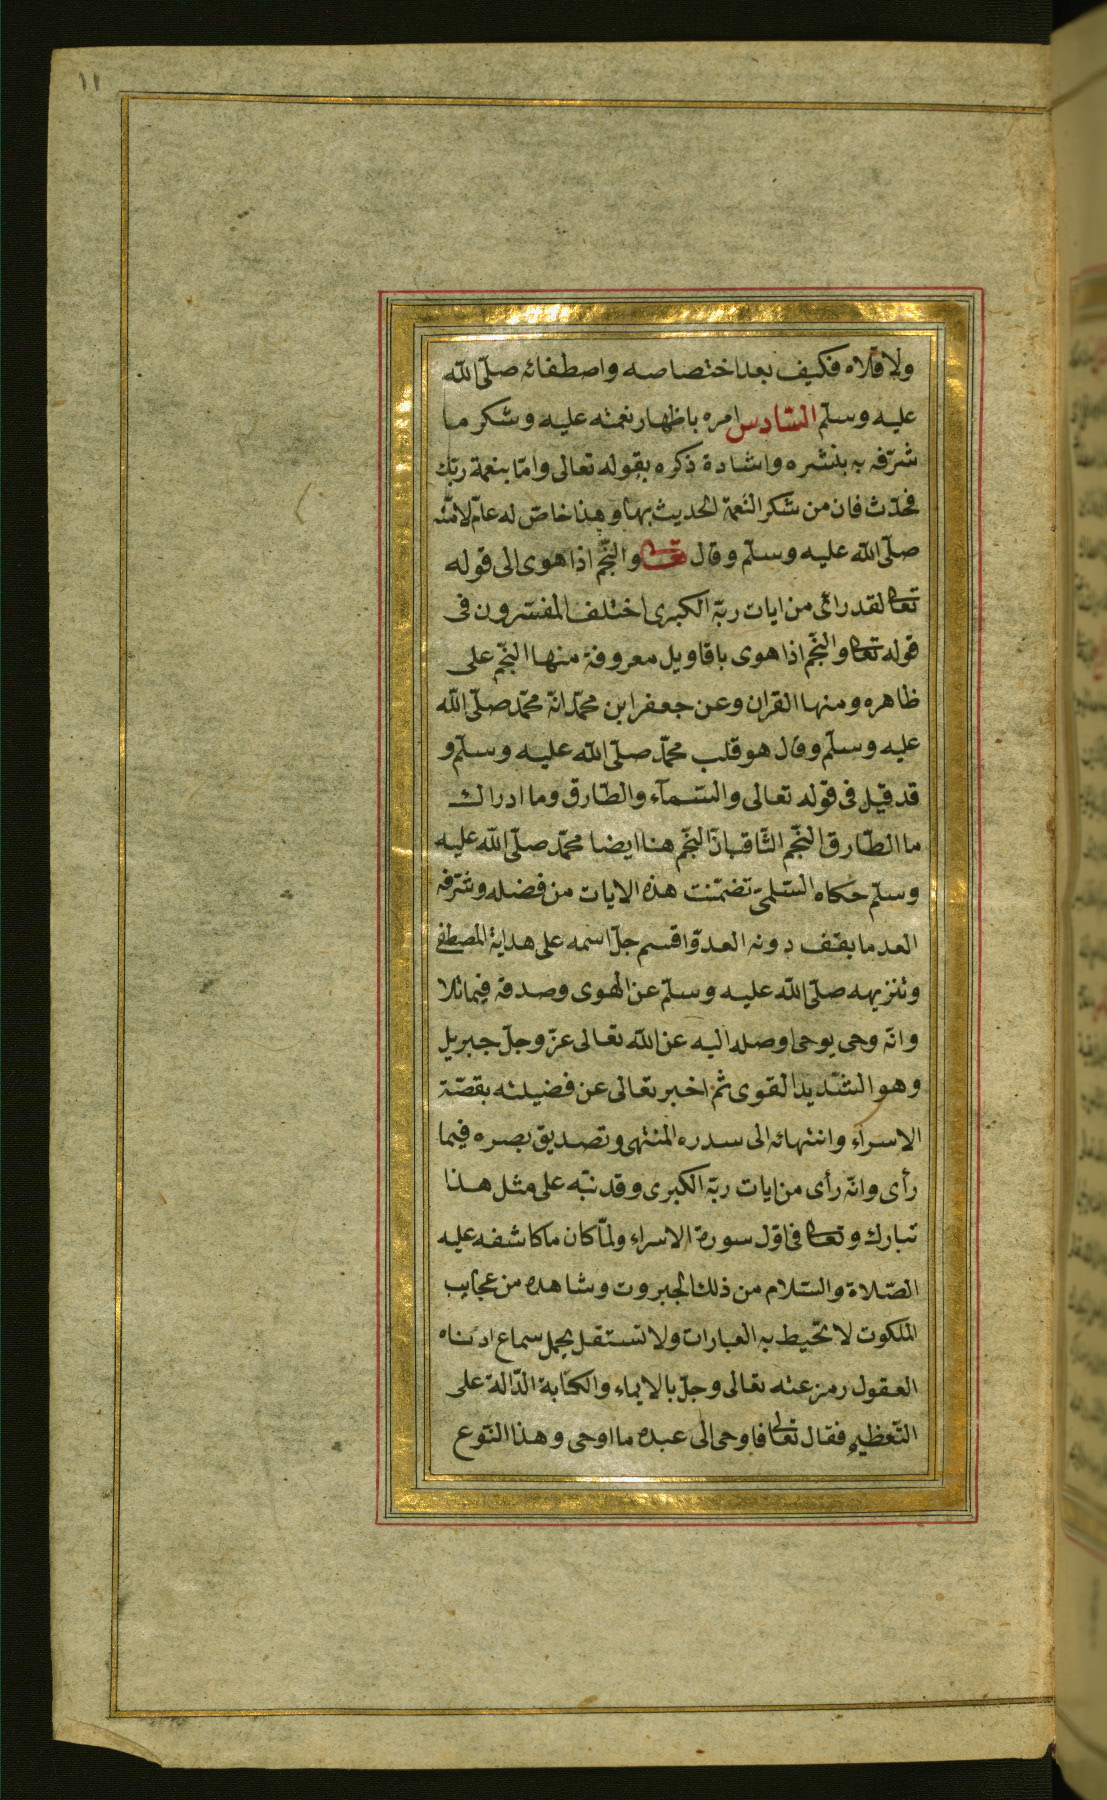 ١١
ولا قلاه فكيف بعد اختصاصه واصطفائه صلّى الله
عليه وسلّم السّادس امره باظهار نعمته عليه وشكر ما
شرّفه به بنشره واشادة ذكره بقوله تعالى وامّا بنعمة ربّك
فحدّث فان من شكر النّعمة الحديث بها وهذا خاصّ له عامّ لامّته
صلّى الله عليه وسلّم وقال تعالى والنّجم اذا هوى الى قوله
تعالى لقد رأى من ايات ربّه الكبرى اختلف المفسّرون فى
قوله تعالى والنّجم اذا هوى باقاويل معروفة منها النّجم على
ظاهره ومنها القران وعن جعفر ابن محمّد انّه محمّد صلّى الله
عليه وسلّم وقال هو قلب محمّد صلّى الله عليه وسلّم و
قد قيل فى قوله تعالى والسّمآء والطّارق وما ادراك
ما الطّارق النّجم الثّاقب انّ النّجم هنا ايضا محمّد صلّى الله عليه
وسلّم حكاه السّلمىّ تضمّنت هذه الايات من فضله وشرفه
العد ما يقف دونه العدّ واقسم جلّ اسمه على هداية المصطفى
وتنزيهه صلّى الله عليه وسلّم عن الهوى وصدقه فيما تلا
وانّه وحى يوحى اوصله اليه عن الله تعالى عزّ وجلّ جبريل
وهو الشّديد القوى ثمّ اخبر تعالى عن فضيلته بقصّة
الاسراء وانتهائه الى سدره المنتهى وتصديق بصره فيما
رأى وانّه رأى من ايات ربّه الكبرى وقد نبّه على مثل هذا
تبارك وتعالى فى اوّل سورة الاسراء ولمّا كان ما كاشفه عليه
الصّلاة والسّلام من ذلك الجبروت وشاهده من عجايب
الملكوت لا تحيط به العبارات ولا تستقل بحمل سماع ادناه
العقول رمز عنه تعالى وجلّ بالايماء والكناية الدّالة على
التّعظيم فقال تعالى فاوحى الى عبده ما اوحى وهذا النّوع